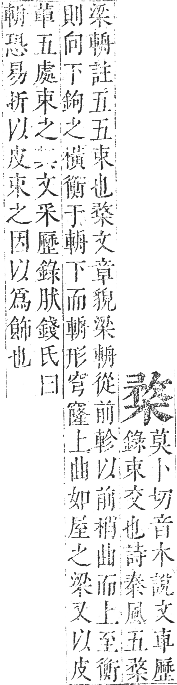 楘
莫卜切音木說文車歷
錄束交也詩秦風五楘
梁輈註五五束也楘文章貌梁輈從前軫以前稍曲而上至衡
則向下鉤之橫衡于輈下而輈形穹隆上曲如屋之梁又以皮
革五處束之其文采歷錄肰錢氏曰
輈恐易折以皮束之因以爲飾也